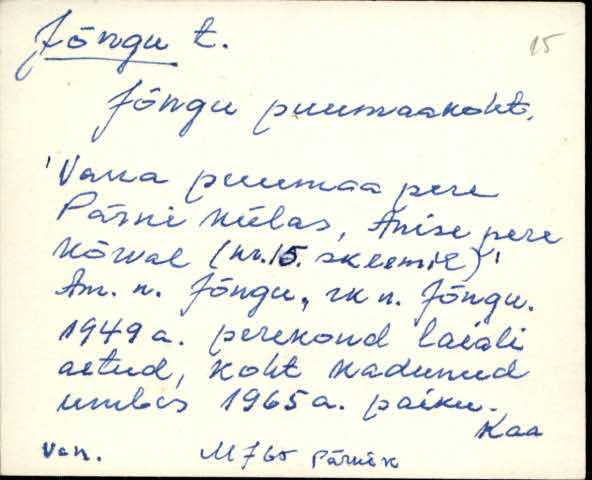 Jõngu t.
15
Jõngu puumaakoht.
'Vana puumaa pere
Pärni külas, Anise pere
kõrval (nr.15. skeemil)'
Am. n. Jõngu, rk n. Jõngu.
1949 a. perekond laiali
aetud, koht kadunud
umbes 1965 a. paiku.
Kaa
Van. Pärnik